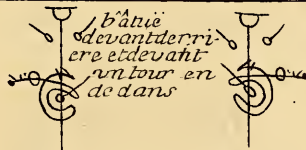 bâtuë
devantderri-
ere etdevant
untour en
dedans